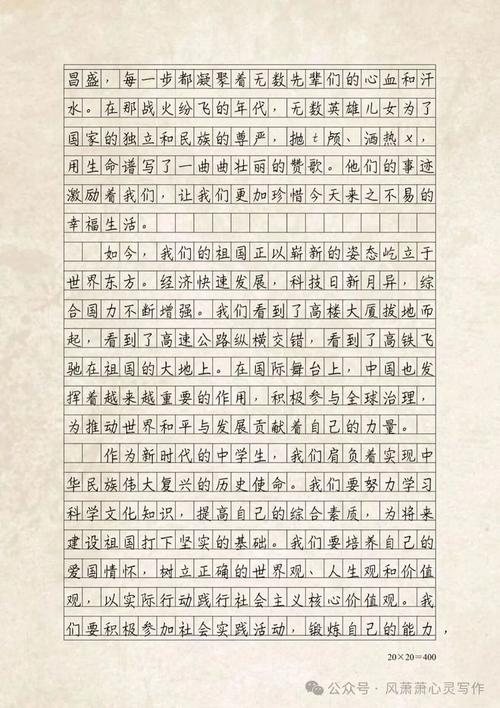 昌盛，每一步都凝聚着无数先辈们的心血和汗
水。在那战火纷飞的年代，无数英雄儿女为了
国家的独立和民族的尊严，抛t颅、洒热x，
用生命谱写了一曲曲壮丽的赞歌。他们的事迹
激励着我们，让我们更加珍惜今天来之不易的
幸福生活。
如今，我们的祖国正以崭新的姿态屹立于
世界东方。经济快速发展，科技日新月异，综
合国力不断增强。我们看到了高楼大厦拔地而
起，看到了高速公路纵横交错，看到了高铁飞
驰在祖国的大地上。在国际舞台上，中国也发
挥着越来越重要的作用，积极参与全球治理，
为推动世界和平与发展贡献着自己的力量。
作为新时代的中学生，我们肩负着实现中
华民族伟大复兴的历史使命。我们要努力学习
科学文化知识，提高自己的综合素质，为将来
建设祖国打下坚实的基础。我们要培养自己的
爱国情怀，树立正确的世界观、人生观和价值
观，以实际行动践行社会主义核心价值观。我
们要积极参加社会实践活动，锻炼自己的能力，
20×20=400
公众号·风萧萧心灵写作